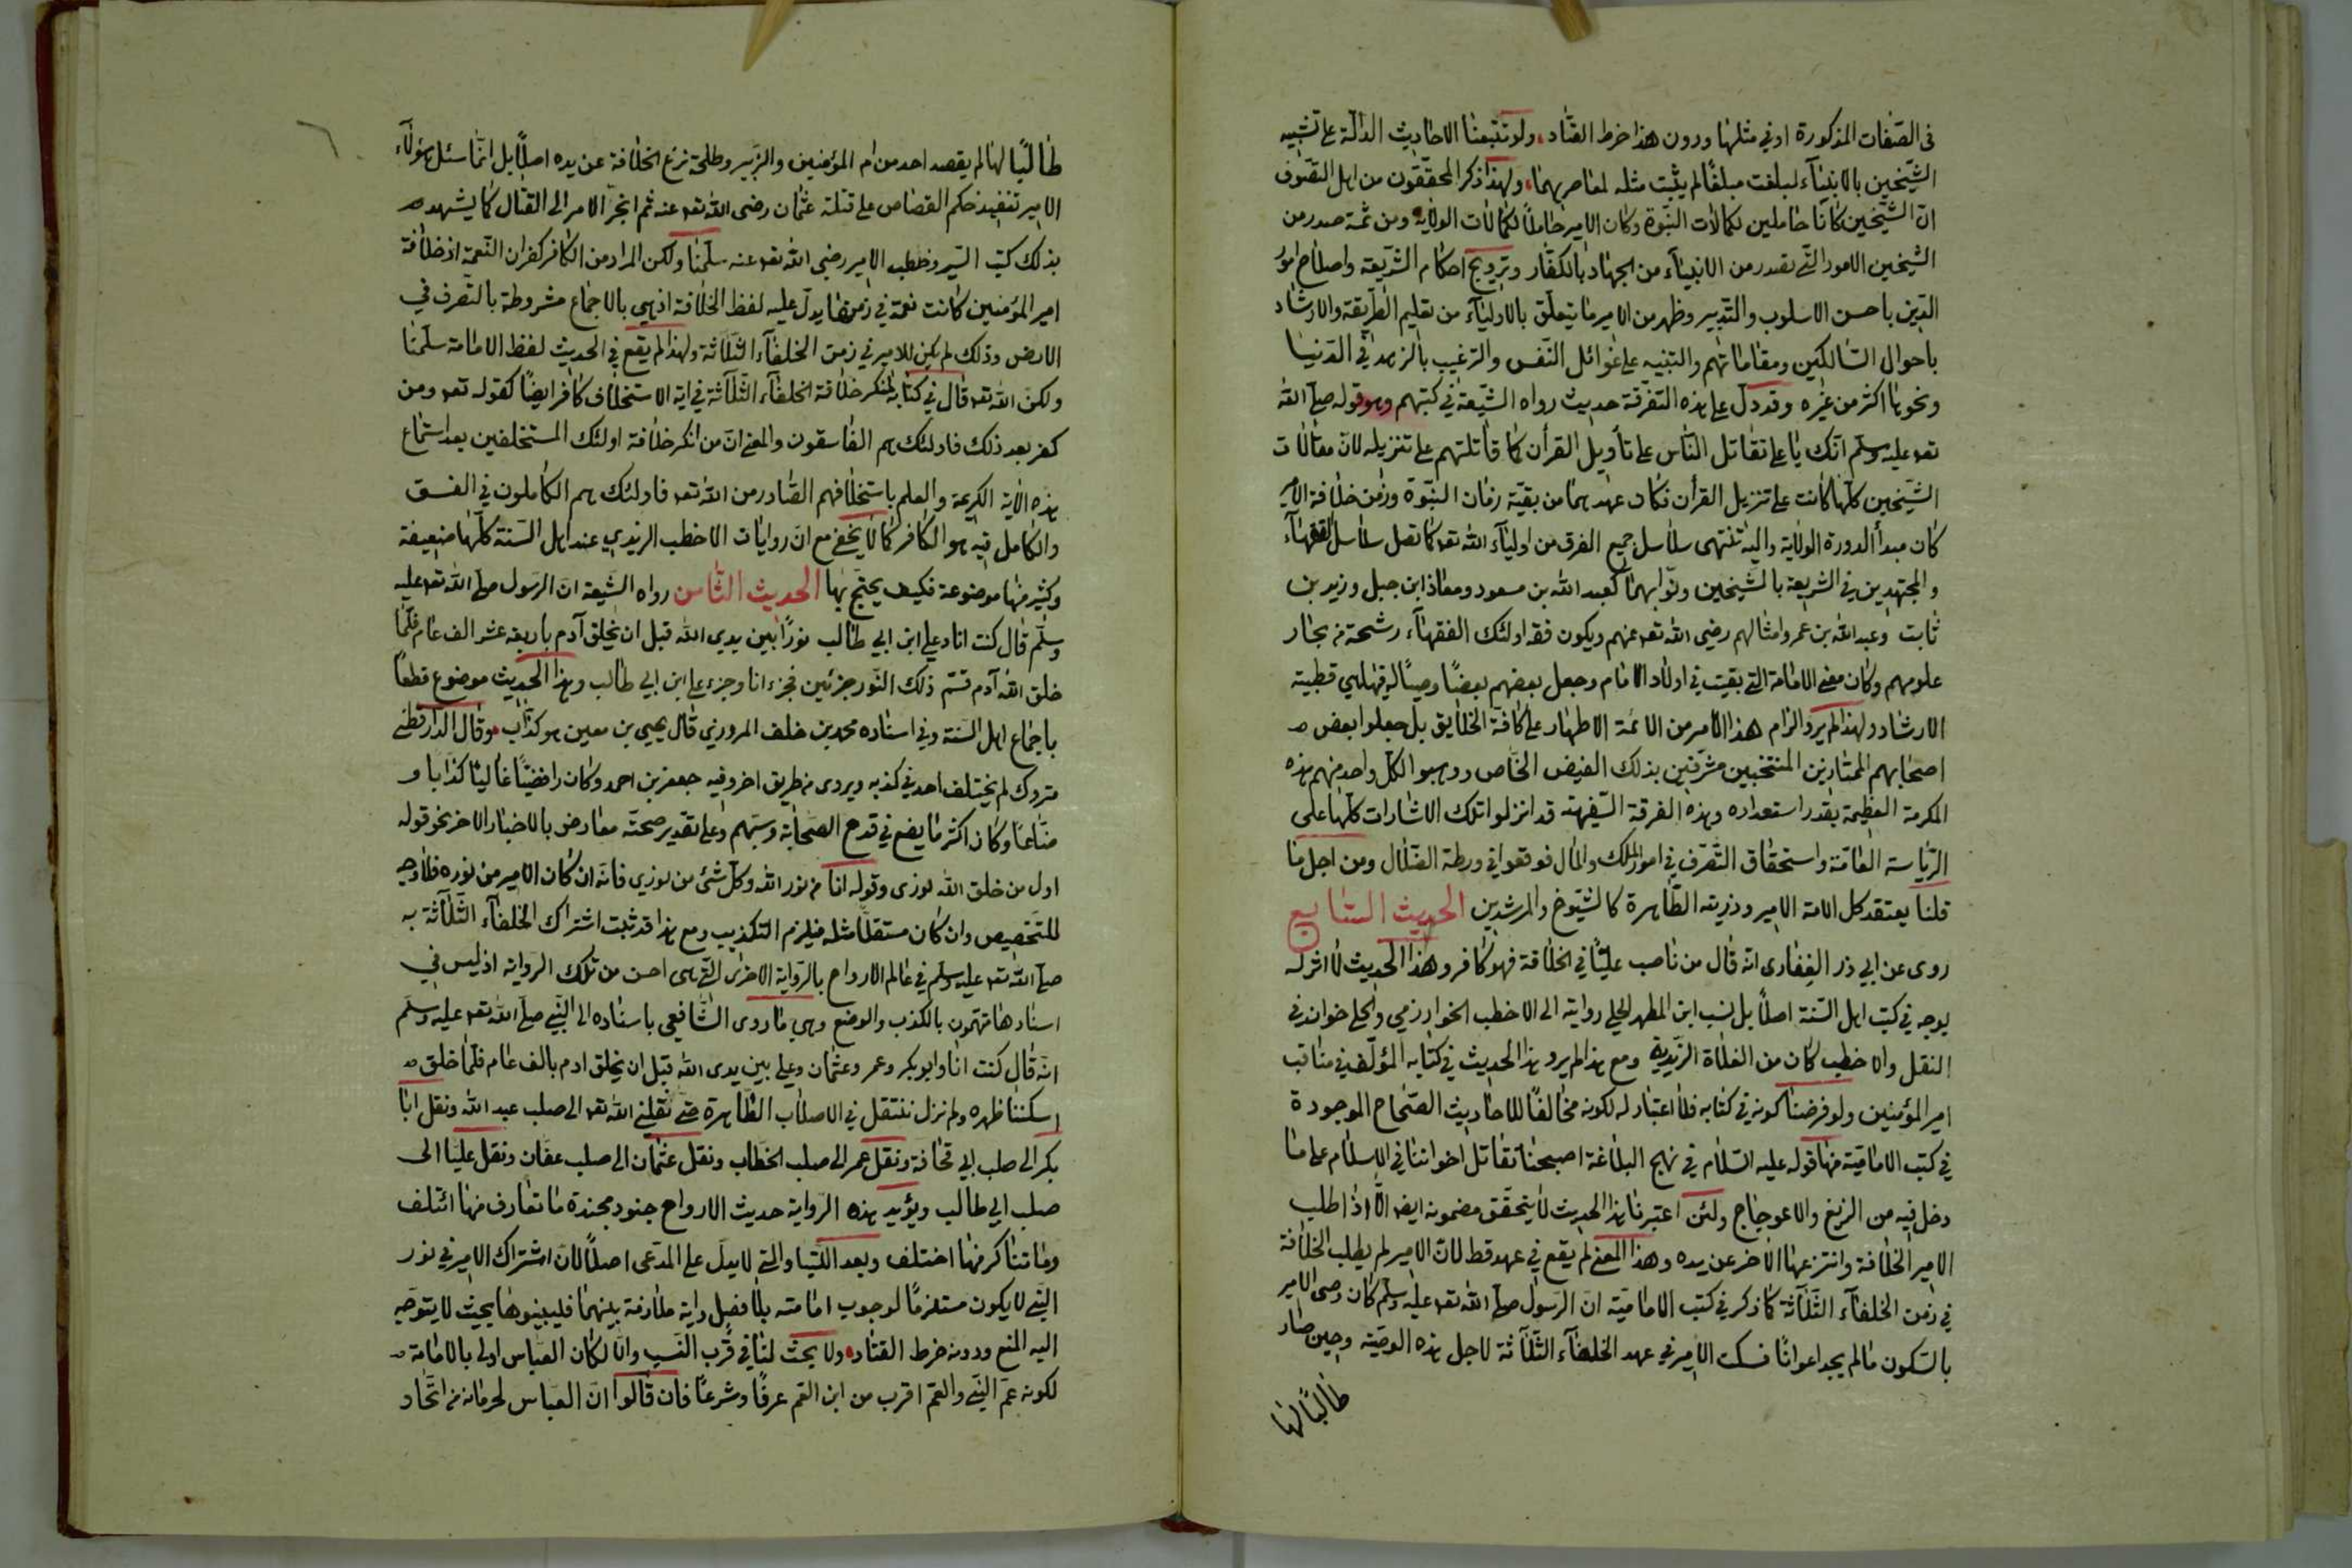 فى الصّفات المذكورة اوفي مثلها ودون هذا خرط القتاد ولو تتبعنا الاحاديث الدالّة على تشبيه
الشيّخين بالانبيآء لبلغت مبلغًا لم يثبت مثله لمعاصريهما ولهذا ذكر المحققون من اهل التصّوف
انّ الشيّخين كانا حاملين لكمالات النّبوة وكان الامير حاملًا لكمالات الولاية ومن ثمة صدر من
الشيخين الامور التّي تصدر من الانبيآء من الجهاد بالكفّار وترويج احكام الشريعة واصلاح امور
الدّين باحسن الاسلوب والتّدبير وظهر من الامير ما يتعلّق بالاوليآء من تعليم الطريقة والارشاد
باحوال السّالكين ومقاماتهم والتنبيه على غوائل النّفس والترغيب بالزهد في الدّنيا
ونحوها اكثر من غيره وقد دلّ على هذه التفرقة حديث رواه الشيّعة في كتبهم وهو قوله صلّى الله
تعه عليه وسلّم انّك يا على تقاتل النّاس على تأويل القرأن كما قاتلتهم على تنزيله لانّ مقاتلات
الشّيخين كلّها كانت على تنزيل القرأن فكان عهدهما من بقيّة زمان النبّوة وزمن خلافة الامير
كان مبدأ لدورة الولاية واليه تنتهى سلاسل جميع الفرق من اوليآء الله تعه كما تصل سلاسل الفقهآء
والمجتهدين في الشريعة بالشيّخين ونوّابهما كعبد الله بن مسعود ومعاذ ابن جبل وزيد بن
ثابت وعبد الله بن عمر وامثالهم رضى الله تعه عنهم ويكون فقه اولئك الفقهآء رشحة من بحار
علومهم وكان معنى الامامة التّي بقيت في اولاد الامام وجعل بعضهم بعضًا وصيًا له فيها هي قطبية
الارشاد ولهذا لم يرو الزام هذا الامر من الائمة الاطهار على كافّة الخلايق بل جعلوا بعض
اصحابهم الممتازين المنتخبين مشرّفين بذلك الفيض الخاّص ووهبوا لكل واحد منهم هذه
المكرمة العظيمة بقدر استعداده وهذه الفرقة السّفيهة قد انزلوا تلك الاشارات كلّها على
الرّياسة العامّة واستحقاق التّصرّف في امور الملك والمال فوقعوا في ورطة الضّلال ومن اجل ما
قلنا يعتقد كل الامة الامير وذرّيته الطّاهرة كالشيّوخ والمرشدين الحديث السّابع
روى عن ابي ذر الغفارى انّه قال من ناصب عليًّا في الخلافة فهو كافر وهذا الحديث لا اثر له
يوجد في كتب اهل السّنة اصلًا بل نسب ابن المطهر الحلي روايته الى الاخطب الخوارزمي والحلي خوان في
النقل والاخطب كان من الغلاة الزّيدية ومع هذا لم يرو هذا الحديث في كتابه المؤلّف في مناقب
امير المؤمنين ولو فرضنا كونه في كتابه فلا اعتبار له لكونه مخالفًا للاحاديث الصّحاح الموجودة
في كتب الاماميّة منها قوله عليه السّلام في نهج البلاغة اصبحنا نقاتل اخواننا في الاسلام على ما
دخل فيه من الزيغ والاعوجاج ولئن اعتبرنا هذا الحديث لا يتحقّق مضمونه ايضا الّا اذا طلب
الامير الخلافة وانتزعها الاخر عن يده وهذا المعنى لم يقع في عهد قط لانّ الامير لم يطلب الخلافة
في زمن الخلفآء الثّلاثة كما ذكر في كتب الاماميّة انّ الرّسول صلّى الله تعه عليه وسلّم كان وصى الامير
بالسّكوت ما لم يجد اعوانًا فسكت الامير في عهد الخلفآء الثّلاثة لاجل هذه الوصيّة وحين صار
طالبًا لها
طالبًا لها لم يقصد احد من ام المؤمنين والزّبير وطلحة نزع الخلافة عن يده اصلًا بل انّما سئل هؤلآء
الامير تنفيذ حكم القصاص على قتلة عثمان رضى الله تعه عنه ثم انجرّ الامر الى القتال كما يشهد
بذلك كتب السّير وخطب الامير رضى الله تعه عنه سلّمنا ولكن المراد من الكافر كفران النّعمة اذ خلافة
امير المؤمنين كانت نعمة في زمنها يدلّ عليه لفظ الخلافة اذ هي بالاجماع مشروطة بالتّصرف في
الارض وذلك لم يكن للامير في زمن الخلفآء الثّلاثة ولهذا لم يقع في الحديث لفظ الامامة سلّمنا
ولكن الله تعه قال في كتابه لمنكر خلافة الخلفآء الثّلاثة في اية الاستخلاف كافر ايضًا كقوله تعه ومن
كفر بعد ذلك فاولئك هم الفاسقون والمعنى انّ من انكر خلافة اولئك المستخلفين بعد استماع
هذه الاية الكريمة والعلم باستخلافهم الصّادر من الله تعه فاولئك هم الكاملون في الفسق
والكامل فيه هو الكافر كما لا يخفى مع انّ روايات الاخطب الزيدي عند اهل السّنة كلّها ضعيفة
وكثير منها موضوعة فكيف يحتجّ بها الحديث الثّامن رواه الشّيعة انّ الرّسول صلّى الله تعه عليه
وسلّم قال كنت انا وعلي ابن ابي طالب نورًا بين يدى الله قبل ان يخلق آدم باربعة عشر الف عام فلمّا
خلق الله آدم قسّم ذلك النّور جزئين فجزء انا وجزء على ابن ابي طالب وهذا الحديث موضوع قطعًا
باجماع اهل السّنة وفي اسناده محمد بن خلف المروزي قال يحيى بن معين هو كذّاب وقال الدّارقطنى
متروك لم يختلف احد في كذبه ويروى من طريق اخر وفيه جعفر بن احمد وكان رافضيًا غاليًا كذّابا و
ضّاعًا وكان اكثر ما يضع في قدح الصّحابة وسبّهم وعلى تقدير صحته معارض بالاخبار الاخر نحو قوله
اول من خلق الله نورى وقوله انا من نور الله وكلّ شئ من نوري فانّه ان كان الامير من نوره فلا وجه
للتّخصيص وان كان مستقلًّا مثله فيلزم التكذيب ومع هذا قد ثبت اشتراك الخلفآء الثّلاثة به
صلّى الله تعه عليه وسلّم في عالم الارواح بالرّواية الاخرى التّي هى احسن من تلك الرّواية اذ ليس في
اسنادها متّهمون بالكذب والوضع وهي ما روى الشّافعي باسناده الى النّبي صلّى الله تعه عليه وسلّم
انّه قال كنت انا وابو بكر وعمر وعثمان وعلي بين يدى الله قبل ان يخلق ادم بالف عام فلمّا خلق
اسكننا ظهره ولم نزل ننتقل في الاصلاب الطّاهرة حتّى نقلني الله تعه الى صلب عبد الله ونقل ابا
بكر الى صلب ابي قحافة ونقل عمر الى صلب الخطّاب ونقل عثمان الى صلب عفّان ونقل عليّا الى
صلب ابي طالب ويؤيد هذه الرّواية حديث الارواح جنود مجندة ما تعارف منها ائتلف
وما تناكر منها اختلف وبعد اللّتيا والتي لا يدلّ على المدّعى اصلًا لانّ اشتراك الامير في نور
النّبي لا يكون مستلزمًا لوجوب امامته بلا فصل واية ملازمة بينهما فليبينوها بحيث لا يتوجّه
اليه المنع ودونه خرط القتاد ولا بحث لنا في قرب النّسب والّا لكان العبّاس اولى بالامامة
لكونه عمّ النّبي والعمّ اقرب من ابن العّم عرفًا وشرعًا فان قالوا انّ العبّاس لحرمانه من اتّحاد